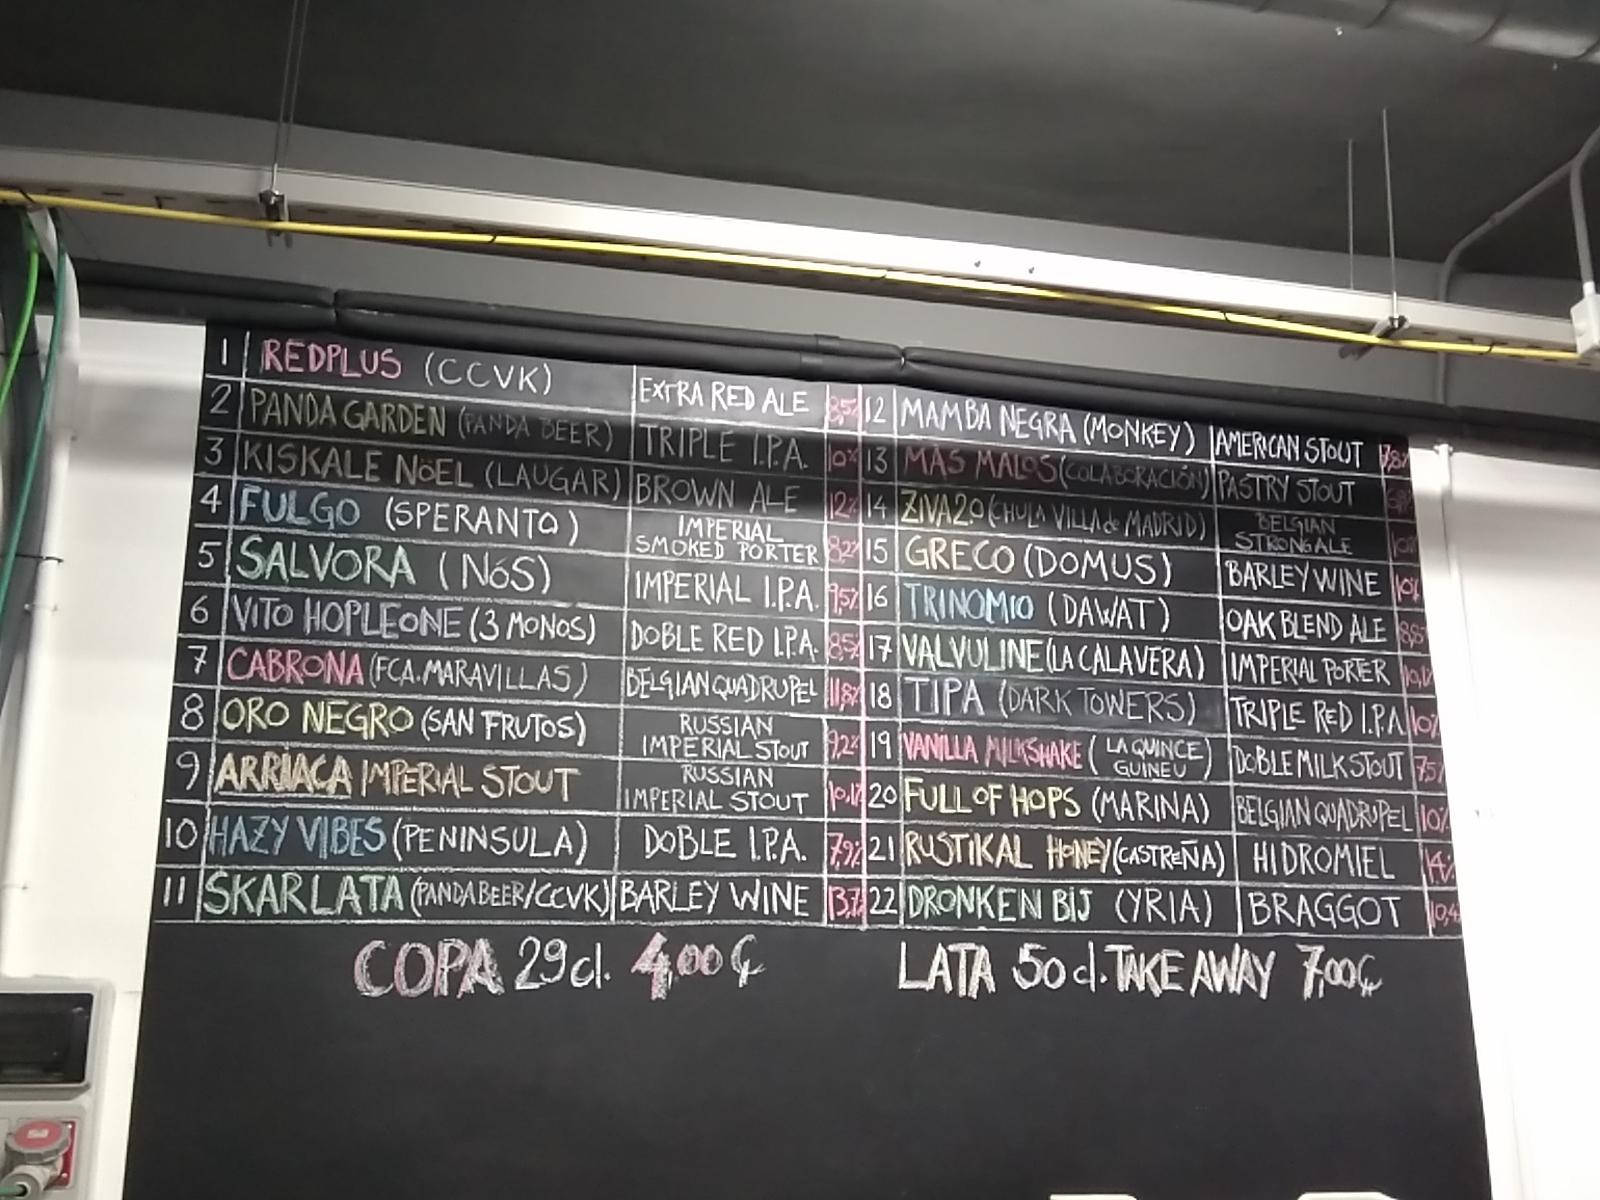 1 REDPLUS (CCVK) EXTRA RED ALE 8,5%
2 PANDA GARDEN (PANDA BEER) TRIPLE I.P.A. 10%
3 KISKALE NOËL (LAUGAR) BROWN ALE 12%
4 FULGO (SPERANTO) IMPERIAL SMOKED PORTER 8,2%
5 SALVORA (NóS) IMPERIAL I.P.A. 9,5%
6 VITO HOPLEONE (3 MONOS) DOBLE RED I.P.A. 8,5%
7 CABRONA (FCA. MARAVILLAS) BELGIAN QUADRUPEL 11,8%
8 ORO NEGRO (SAN FRUTOS) RUSSIAN IMPERIAL STOUT 9,2%
9 ARRIACA IMPERIAL STOUT RUSSIAN IMPERIAL STOUT
10 HAZY VIBES (PENINSULA) DOBLE I.P.A. 7,9%
11 SKARLATA (PANDA BEER/CCVK) BARLEY WINE
12 MAMBA NEGRA (MONKEY) AMERICAN STOUT
13 MAS MALOS (COLABORACIÓN) PASTRY STOUT
14 ZIVA 2.0 (CHULA VILLA de MADRID) BELGIAN STRONG ALE
15 GRECO (DOMUS) BARLEY WINE 10%
16 TRINOMIO (DAWAT) OAK BLEND ALE
17 VALVULINE (LA CALAVERA) IMPERIAL PORTER
18 TIPA (DARK TOWERS) TRIPLE RED I.P.A. 10%
19 VANILLA MILKSHAKE (LA QUINCE GUINEU) DOBLE MILK STOUT 7,5%
20 FULL OF HOPS (MARINA) BELGIAN QUADRUPEL 10%
21 RUSTIKAL HONEY (CASTREÑA) HIDROMIEL 14%
22 DRONKEN BIJ (YRIA) BRAGGOT
COPA 29 cl. 4,00 €
LATA 50 cl. TAKE AWAY 7,00 €